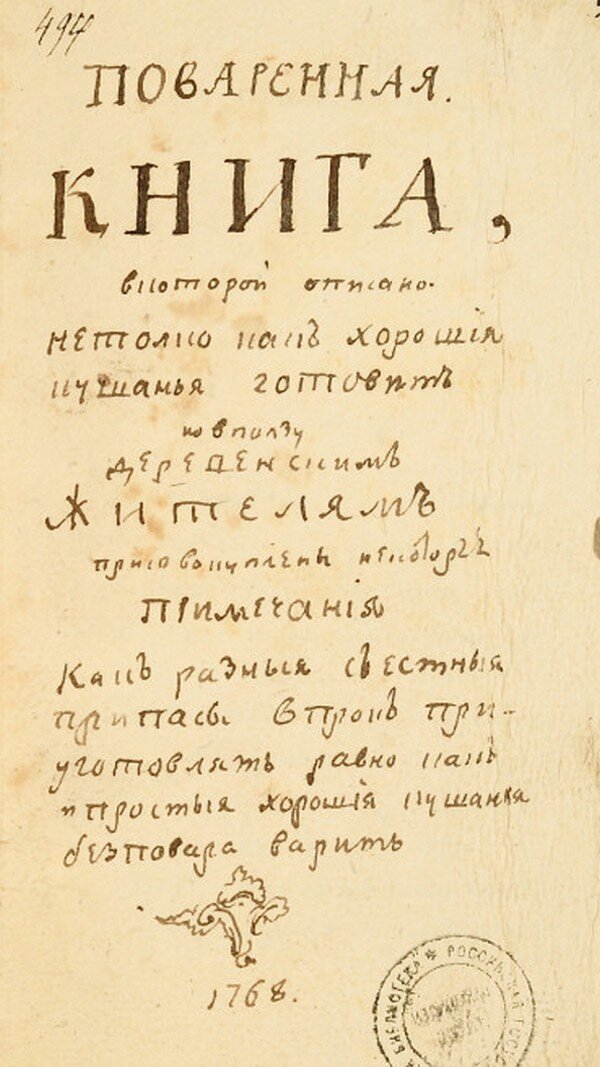 494
ПОВАРЕННАЯ.
КНИГА,
вкоторой описано.
нетолко какъ хорошія
кушанья готовить
но вползу
ДЕРЕВЕНскимъ
ЖИТЕЛЯМЪ
присовокуплены
ПРИМЕЧАНІЯ
Какъ разныя съестныя
припасы впрокъ при-
уготовлять равно какъ
и простыя хорошія кушанья
безповара варить
1768.
БИБЛИОТЕКА * РОССИЙСКАЯ